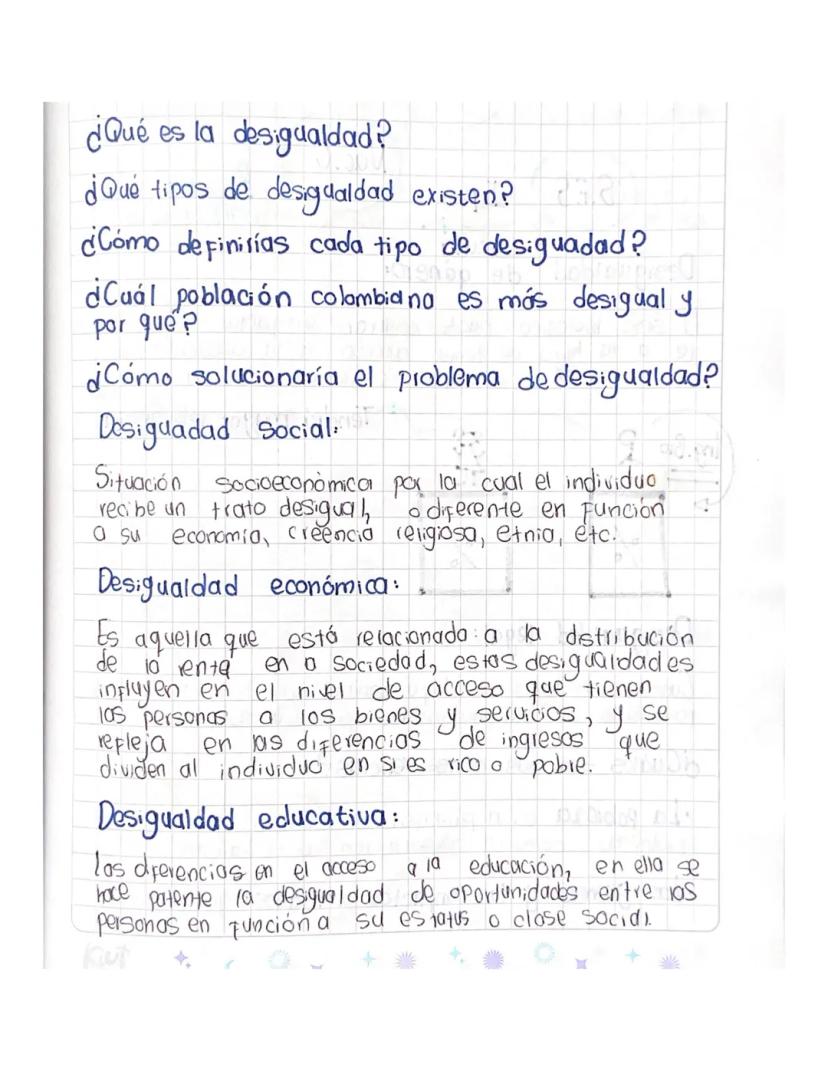 ¿Qué es la desigualdad?
¿Qué tipos de desigualdad existen?
¿Cómo definirías cada tipo de desiguadad?
¿Cuál población colombiana es más desigual y
por qué?
¿Cómo solucionaría el problema de desigualdad?
Desiguadad social:
Situación socioeconómica por la cual el individuo
recibe un trato desigual, o diferente en función
a su economía, creencia religiosa, etnia, etc.
Desigualdad económica:
Es aquella que está relacionada a la dstribución
de la renta en a sociedad, estas desigualdades
influyen en el nivel de acceso que tienen
las personas a los bienes y servicios, y se
refleja en las diferencias de ingresos que
dividen al individuo en si es rico o pobre.
Desigualdad educativa:
Las dferencias en el acceso a la educación, en ella se
hace patente la desigualdad de oportunidades entre las
personas en función a su estatus o clase social.
Kiut